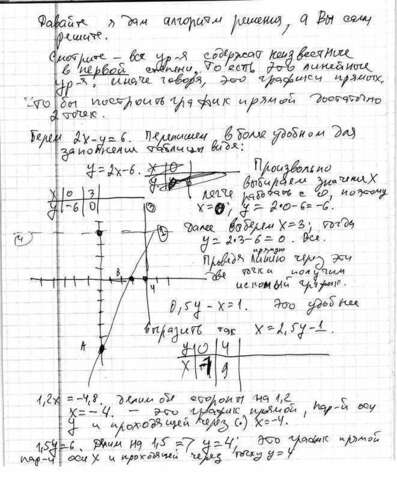 Давайте я дам алгоритм решения, а Вы сами
решите.
Смотрите - все ур-я содержат неизвестные
в первой степени. То есть это линейные
ур-я. Иначе говоря, это графики прямых.
Что бы построить график прямой достаточно
2 точек.
Берем 2x-y=6. Перепишем в более удобном для
заполнения таблицы виде:
y=2x-6. x 0
y
Произвольно
выбираем значения x
легче работать с 0, поэтому
x=0; y=2·0-6=-6.
x 0 3
y -6 0
далее выберем x=3; тогда
y=2·3-6=0. Все.
Проведя прямую линию через эти
две точки получим
искомый график.
3 4
A
0,5y-x=1. это удобнее
выразить так x=2,5y-1
y 0 4
x -1 9
1,2x=-4,8. делим обе стороны на 1,2
x=-4. - это график прямой, пар-й оси
y и проходящей через (.) x=-4.
1,5y=6. делим на 1,5 => y=4; это график прямой
пар-й оси x и проходящей через точку y=4